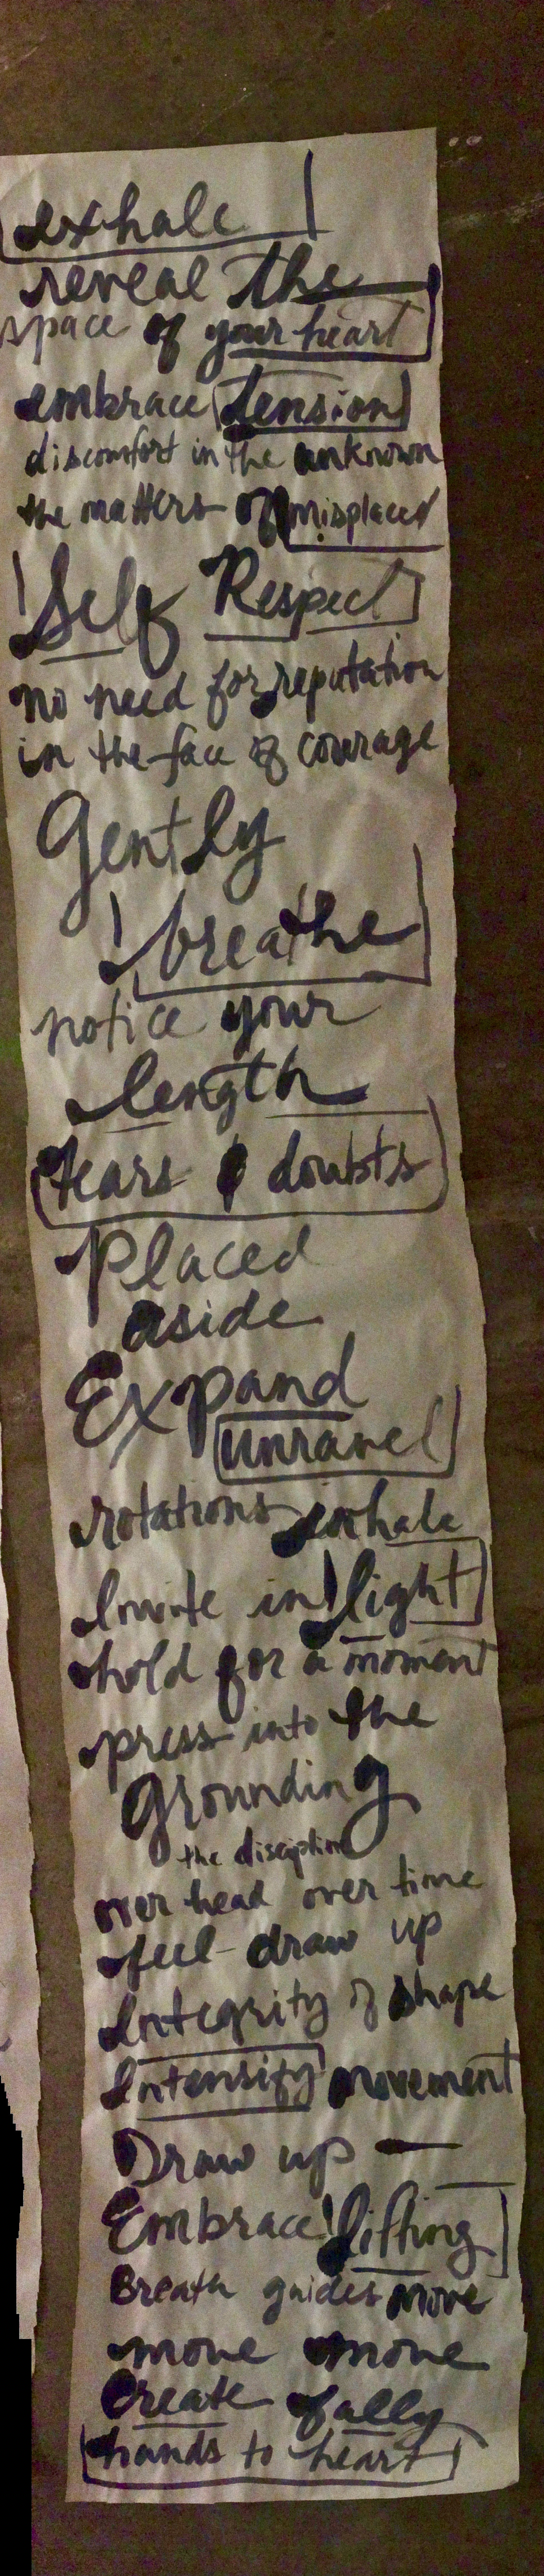 exhale
reveal the
space of your heart
embrace tension
discomfort in the unknown
the matters of misplaced
Self Respect
no need for reputation
in the face of courage
Gently
breathe
notice your
length
& doubts
Placed
aside
Expand
unravel
rotations inhale
Invite in light
hold for a moment
press into the
grounding
the discipline
over head over time
feel - draw up
Integrity of shape
Intensify movement
Draw up —
Embrace lifting
Breath guides move
move move
Create fully
hands to heart